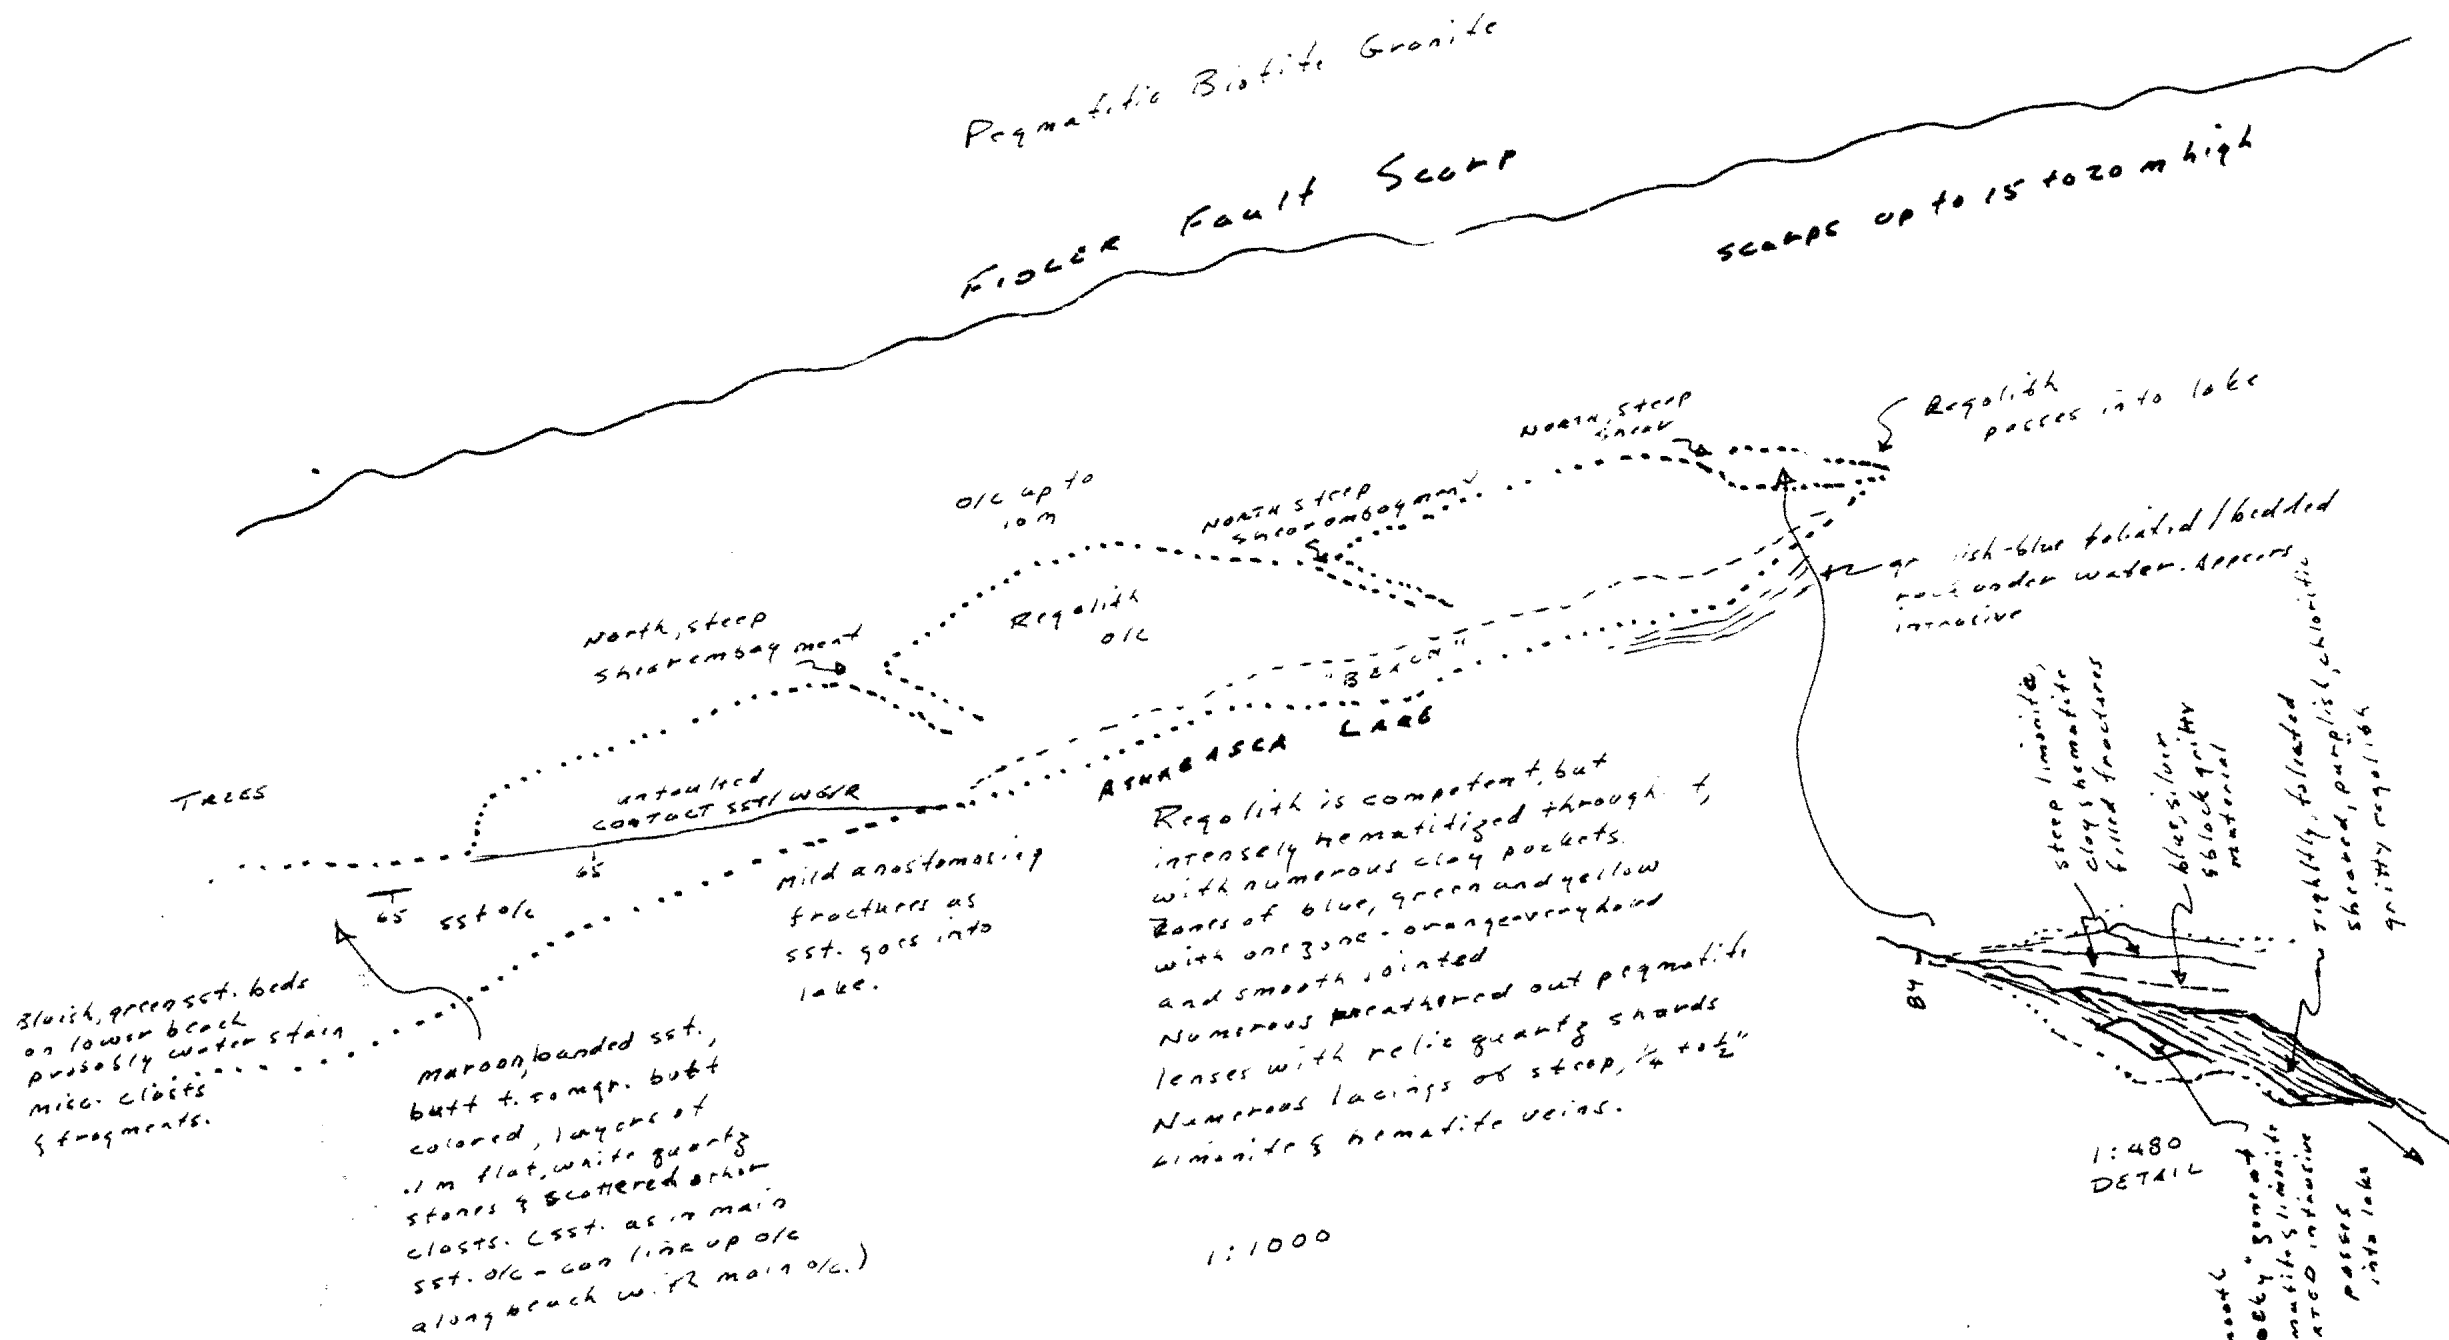 Pegmatitic Biotite Granite
FIDLER Fault Scarp
scarps up to 15 to 20 m high
North, steep
shear
Regolith
passes into lake
o/c up to
10 m
North steep
shear embaym
ish-blue foliated/bedded
rock under water. Appears
intrusive
North, steep
shear embayment
Regolith
o/c
"BEACH"
ATHABASCA LAKE
TREES
unfaulted
CONTACT SST/
65
65
sst o/c
Mild anastomosing
fractures as
sst. goes into
lake.
Regolith is competent, but
intensely hematitized through t,
with numerous clay pockets.
Zones of blue, green and yellow
with one zone - orange-very hard
and smooth jointed
Numerous weathered out pegmatite
lenses with relic quartz shards
Numerous lacings of steep, 1/4 to 1/2"
limonite & hematite veins.
Bluish, green sst. beds
on lower beach
probably water stain
misc. clasts
& fragments.
Maroon, banded sst.,
buff f. to mgr. buff
colored, layers of
.1 m flat, white quartz
stones & scattered other
clasts. (sst. as in main
sst. o/c - can line up o/c
along beach with main o/c.)
1:1000
steep limonite,
clay & hematite
filled fractures
blue, silver
& black gritty
material
Tightly, foliated
sheared, purplish, chloritic
gritty regolith
84
1:480
DETAIL
zone of
limonite
intrusive
passes
into lake